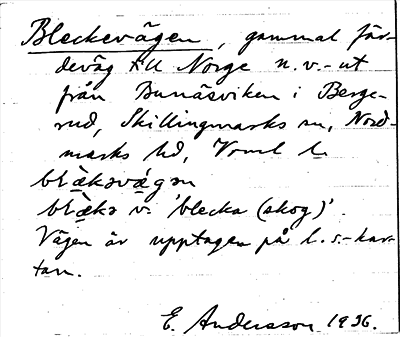 Bleckevägen, gammal fär-
deväg till Norge n.v.-ut
från Bunäsviken i Berge-
rud, Skillingmarks sn, Nord-
marks hd, Vrml l.
blækəvægən
blækə v. 'blecka (skog)'.
Vägen är upptagen på l.s.-kar-
tan.
E. Andersson 1936.